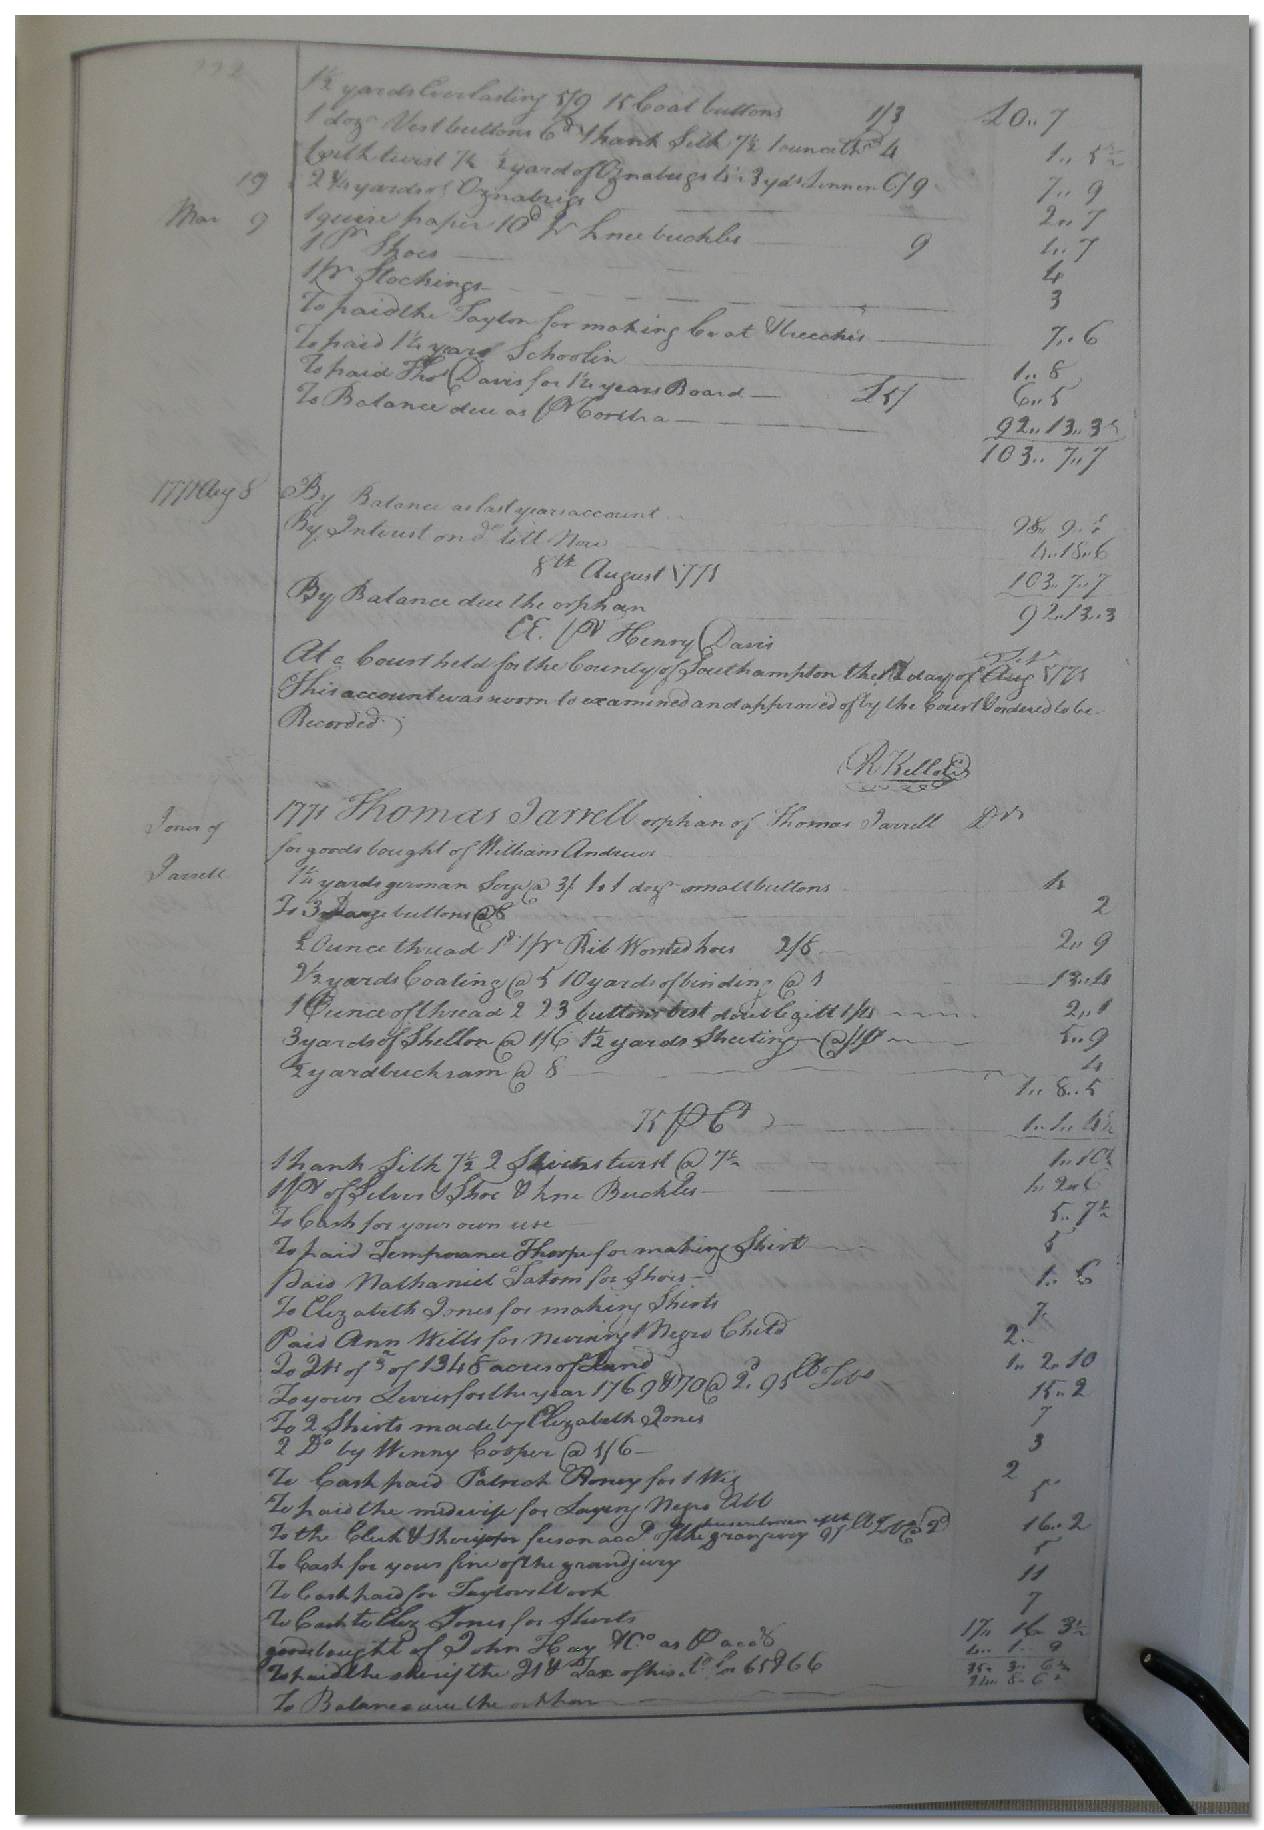 1½ yards Everlasting 5/9 15 Coat buttons 1/3 £0.. 7
1 dozn Vest buttons 6d 1 hank Silk 7½ 1 ounce thd 4 1.. 5½
with twist 7½ ½ yard of Oznabrigs 3 yds Linnen 6/9 7.. 9
19 2¼ yards of Oznabrigs 2.. 7
Mar 9 1 quire paper 10d pr knee buckles 9 1.. 7
1 pr Shoes 4
1 pr Stockings 3
To paid the Taylor for making Coat & breeches 7.. 6
To paid 1¼ years Schoolin 1.. 8
To paid Thos Davis for 1¼ years Board £5/ 6.. 5
To Balance due as pr Contra 92.. 13.. 3½
103.. 7.. 7
1771 Aug 8 By Balance as last years account 98.. 9..
By Interest on do till Now 4.. 18.. 6
8th August 1771 103.. 7.. 7
By Balance due the orphan 92.. 13.. 3
EE. pr Henry Davis
At a Court held for the County of Southampton the day of Aug 1771
This account was sworn to examined and approved of by the Court & ordered to be
Recorded
R Kello
1771 Thomas Jarrell orphan of Thomas Jarrell Dr
Jones of
Jarrell
for goods bought of William Andrews
1¼ yards german Serge @ 3/ 1 dozn small buttons
To 3 large buttons @ 8 2
½ Ounce thread 1d 1 pr Rib Worsted hoes 2/8 2.. 9
2½ yards Coating @ 5 10 yards of binding @ 1 13.. 4
1 Ounce of thread 2 23 buttons best double gilt 1/11 2.. 1
3 yards of Shellon @ 1/6 1½ yards Sheeting @ 5.. 9
½ yard buckram @ 8 4
1.. 8.. 5
75 p Ct 1.. 1.. 4½
1 hank Silk 7½ 2 twist @ 7½ 1.. 10½
1 pr of Silver Shoe & knee Buckles 1.. 2.. 6
To Cash for your own use 5.. 7½
To paid Temperance Thorpe for making Shirt 5
Paid Nathaniel Tatom for Shoes 1.. 6
To Elizabeth Jones for making Shirts 7
Paid Ann Wills for nursing 1 Negro Child 2.
To Qts of of 1348 acres of Land 1.. 2.. 10
To your Levies for the year 1769 & 70 @ 2d 95 lb Tobo 15.. 2
To 2 Shirts made by Elizabeth Jones 7
2 Do by Winny Cooper @ 1/6 3
To Cash paid Patrick Roney for 1 Wig 2
To paid the midwife for Laying Negro Abb 5
To the Clerk & Sheriff for fees on acct of the presentment of the grand jury 97 lb Tob @ 2d 16.. 2
To Cash for your fine of the grand jury 5
To Cash paid for Taylors Work 11
To Cash to Eliz Jones for Shirts 7
goods bought of John Hay & Co as p acct 17.. 16.. 3½
To paid the sherif the Qt & Tax of his for 65 & 66 4.. 1.. 9
35.. 3.. 6½
To Balance due the orphan 24.. 8.. 6½